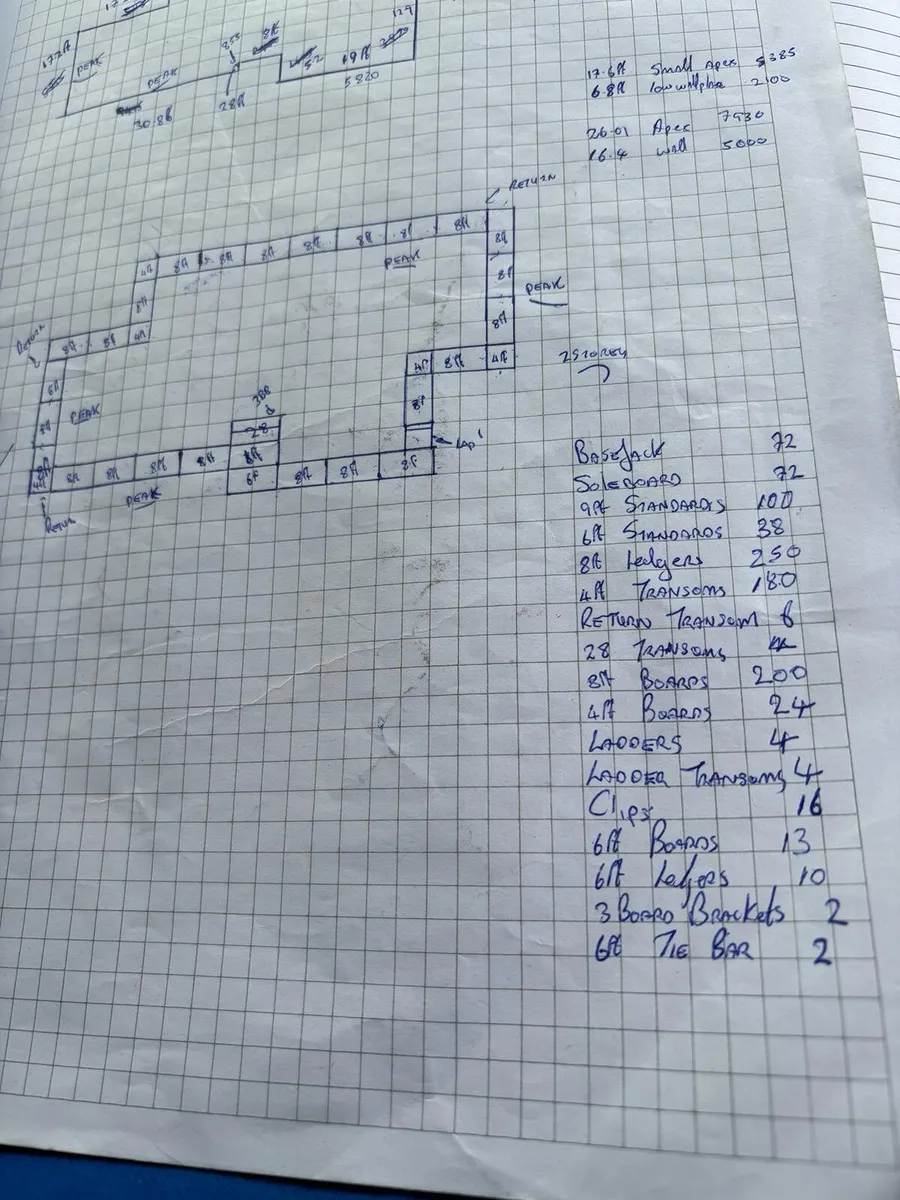 17.2ft
PEAK
PEAK
30.8ft
28ft
8ft
52
19ft
5820
129
17.6ft Small Apex 5385
6.8ft low wallplate 2100
26.01 Apex 7930
16.4 wall 5000
RETURN
4ft 8ft 8ft 8ft 8ft 8ft 8ft 8ft
8ft
PEAK
8ft
8ft
PEAK
8ft
8ft
4ft
Return
8ft 8ft
6ft
PEAK
8ft
8ft
4ft 8ft 4ft
8ft
2 STOREY
3BB
28
8ft
LAP
4ft
8ft 8ft 8ft 8ft 6ft 8ft 8ft 8ft
PEAK
Return
BASEJACK 72
SOLEBOARD 72
9ft STANDARDS 100
6ft STANDARDS 38
8ft Ledgers 250
4ft TRANSOMS 180
RETURN TRANSOM 6
28 TRANSOMS 4
8ft BOARDS 200
4ft BOARDS 24
LADDERS 4
LADDER TRANSOMS 4
Clips 16
6ft BOARDS 13
6ft Ledgers 10
3 BOARD BRACKETS 2
6ft TIE BAR 2